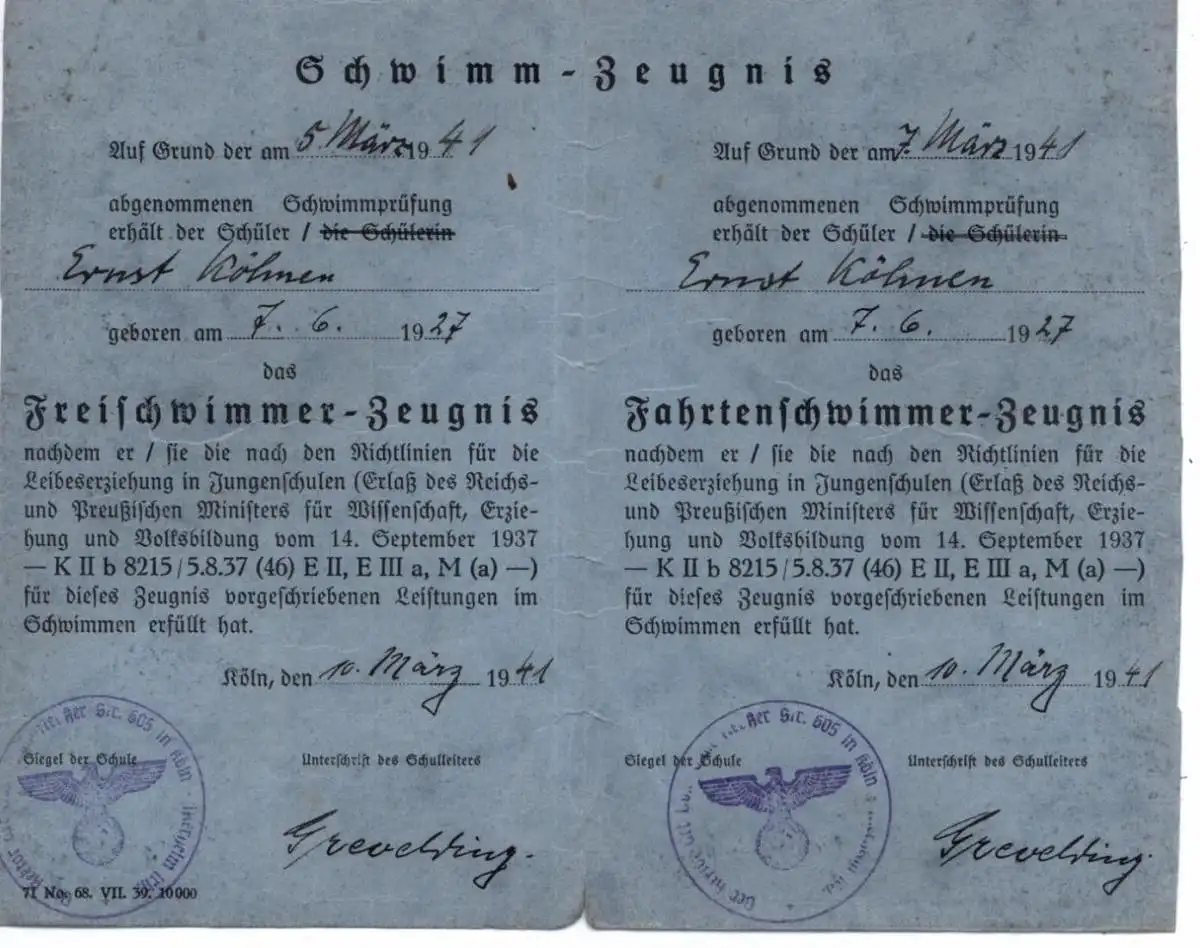 Schwimm-Zeugnis
Auf Grund der am 5 März 1941
abgenommenen Schwimmprüfung
erhält der Schüler / die Schülerin
Ernst Köhnen
geboren am 7. 6. 1927
das
Freischwimmer-Zeugnis
nachdem er / sie die nach den Richtlinien für die
Leibeserziehung in Jungenschulen (Erlaß des Reichs-
und Preußischen Ministers für Wissenschaft, Erzie-
hung und Volksbildung vom 14. September 1937
— K II b 8215/5.8.37 (46) E II, E III a, M (a) —)
für dieses Zeugnis vorgeschriebenen Leistungen im
Schwimmen erfüllt hat.
Köln, den 10. März 1941
Siegel der Schule
Unterschrift des Schulleiters
Str. 605 in Köln
Grevelding.
71 No. 68. VII. 39. 10000
Auf Grund der am 7. März 1941
abgenommenen Schwimmprüfung
erhält der Schüler / die Schülerin
Ernst Köhnen
geboren am 7. 6. 1927
das
Fahrtenschwimmer-Zeugnis
nachdem er / sie die nach den Richtlinien für die
Leibeserziehung in Jungenschulen (Erlaß des Reichs-
und Preußischen Ministers für Wissenschaft, Erzie-
hung und Volksbildung vom 14. September 1937
— K II b 8215/5.8.37 (46) E II, E III a, M (a) —)
für dieses Zeugnis vorgeschriebenen Leistungen im
Schwimmen erfüllt hat.
Köln, den 10. März 1941
Siegel der Schule
Unterschrift des Schulleiters
Str. 605 in Köln
Grevelding.